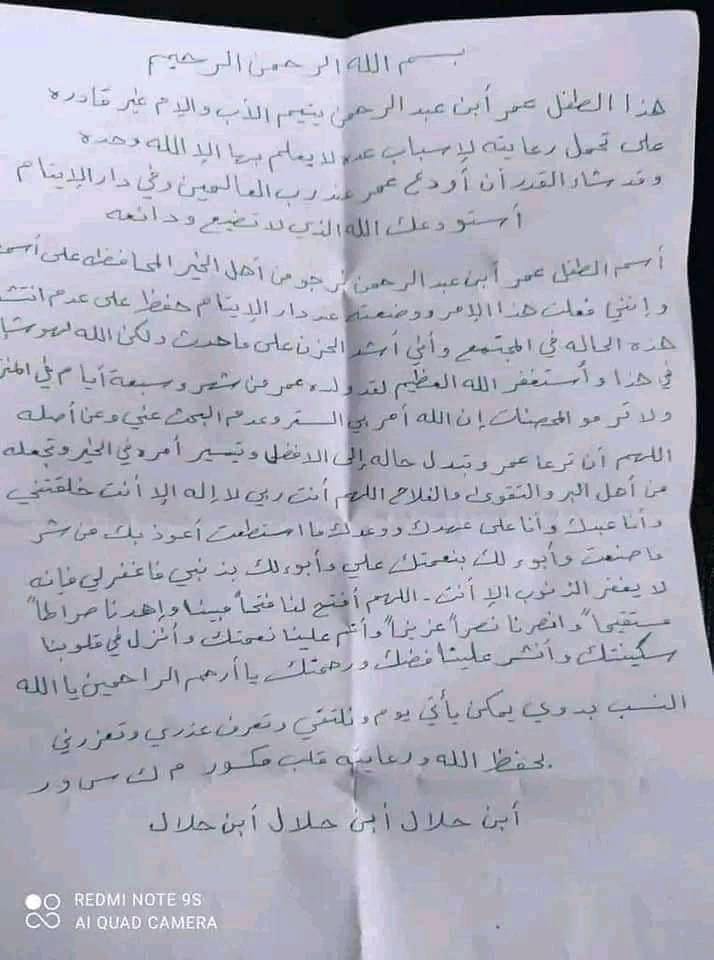 بسم الله الرحمن الرحيم
هذا الطفل عمر أبن عبد الرحمن يتيم الأب والإم غير قادره
على تحمل رعايته لإسباب عده لا يعلم بها الإ الله وحده
وقد شاء القدر أن أودع عمر عند رب العالمين وفي دار الإيتام
أستودعك الله الذي لا تضيع ودائعه
أسم الطفل عمر أبن عبد الرحمن نرجو من أهل الخير المحافظه على أسمه
وإنني فعلت هذا الإمر ووضعته عند دار الإيتام حفظ على عدم انتشا
هذه الحاله في المجتمع وأني أشد الحزن على ما حدث ولكن الله لهو شا
في هذا وأستغفر الله العظيم لقد ولده عمر من شهر وسبعة أيام في المنز
ولا ترمو المحصنات إن الله أمر بي الستر وعدم البحث عني وعن أصله
اللهم أن ترعا عمر وتبدل حاله إلى الافضل وتيسير أمره في الخير وتجعله
من أهل البر والتقوى والفلاح اللهم أنت ربي لا إله الإ أنت خلقتني
وأنا عبدك وأنا على عهدك ووعدك ما استطعت أعوذ بك من شر
ما صنعت وأبوء لك بنعمتك علي وأبوء لك بذنبي فاغفرلي فإنه
لا يغفر الذنوب الإ أنت - اللهم أفتح لنا فتحاً مبينا وإهدنا صراطاً
مستقيماً وانصرنا نصراً عزيزاً وأتم علينا نعمتك وأنزل في قلوبنا
سكينتك وأنشر علينا فضلك ورحمتك يا أرحم الراحمين يا الله
النسب بدوي يمكن يأتي يوم ونلتقي وتعرف عذري وتعزرني
بحفظ الله ورعايته قلب مكسور م ك س و ر
أبن حلال أبن حلال أبن حلال
REDMI NOTE 9S
AI QUAD CAMERA